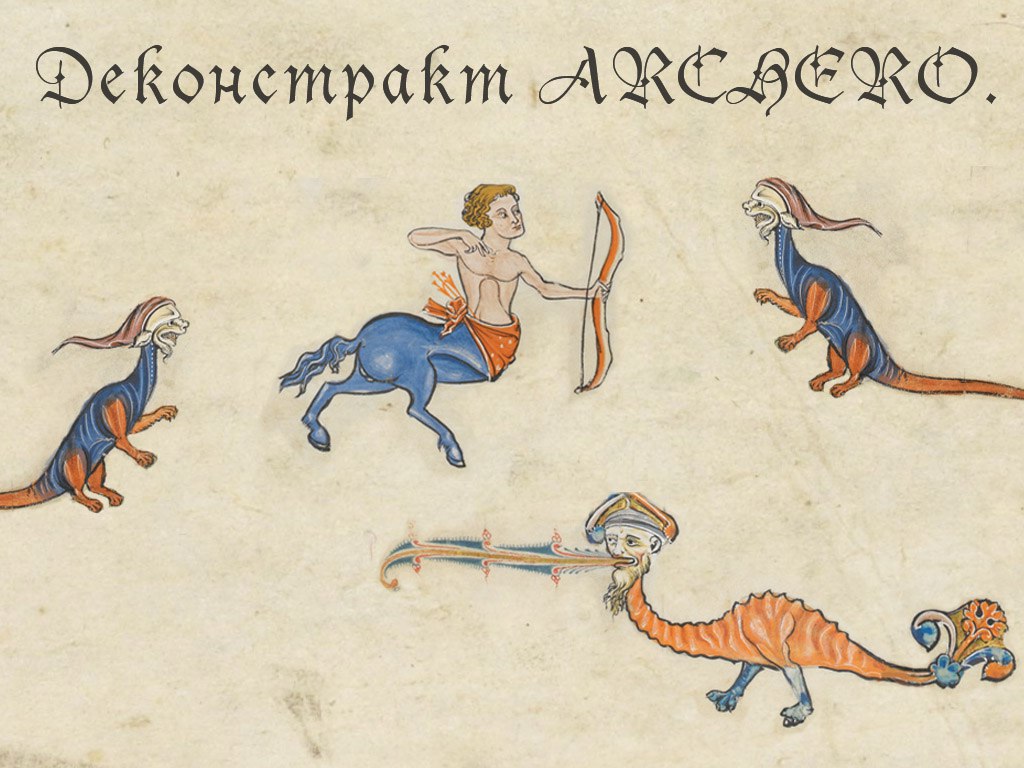 Деконстракт ARCHERO.